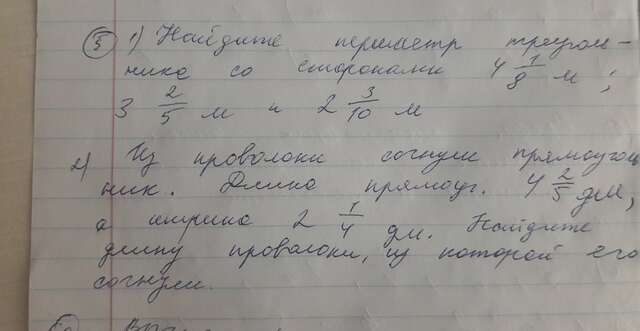 5 1) Найдите периметр треуголь-
ника со сторонами 4 1/8 м ;
3 2/5 м и 2 3/10 м
2) Из проволоки согнули прямоугольн
ник. Длина прямоуг. 4 2/5 дм,
а ширина 2 1/4 дм. Найдите
длину проволоки, из которой его
согнули.